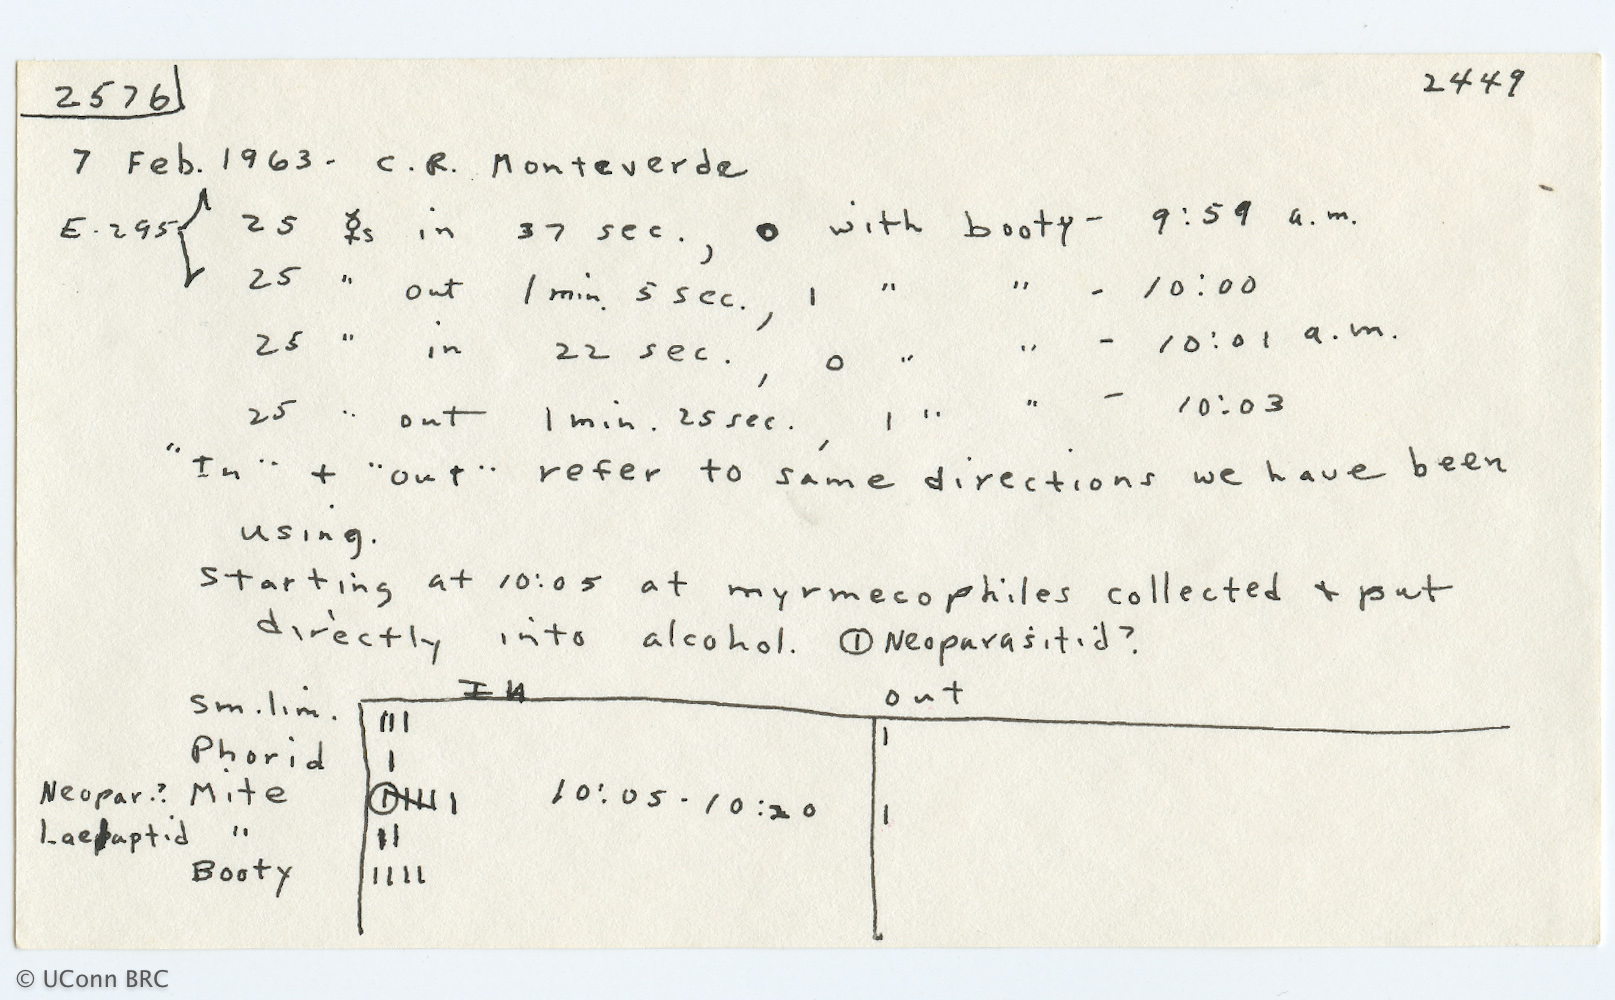 2576
2449
7 Feb. 1963 - C.R. Monteverde
E-295 25 ☿s in 37 sec., 0 with booty - 9:59 a.m.
25 " out 1 min. 5 sec., 1 " " - 10:00
25 " in 22 sec., 0 " " - 10:01 a.m.
25 " out 1 min. 25 sec., 1 " " - 10:03
"In" + "out" refer to same directions we have been
using.
Starting at 10:05 at myrmecophiles collected + put
directly into alcohol. ① Neoparasitid?
IN out
Sm. lim. III I
Phorid I
Neopar.? Mite ①IIII I 10:05 - 10:20 I
Laelaptid " II
Booty IIII
© UConn BRC